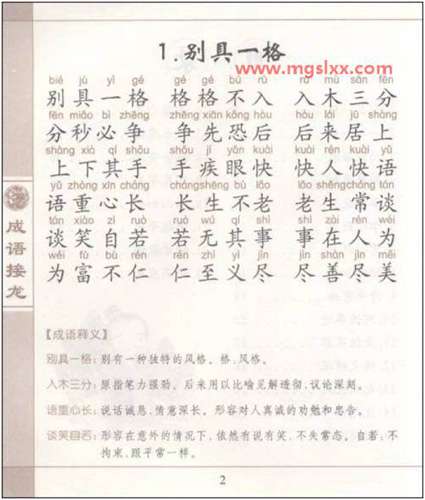 1.别具一格
www.mgslxx.com
bié jù yì gé gé gé bú rù rù mù sān fēn
别具一格 格格不入 入木三分
fēn miǎo bì zhēng zhēng xiān kǒng hòu hòu lái jū shàng
分秒必争 争先恐后 后来居上
shàng xià qí shǒu shǒu jí yǎn kuài kuài rén kuài yǔ
上下其手 手疾眼快 快人快语
yǔ zhòng xīn cháng cháng shēng bù lǎo lǎo shēng cháng tán
语重心长 长生不老 老生常谈
tán xiào zì ruò ruò wú qí shì shì zài rén wéi
谈笑自若 若无其事 事在人为
wéi fù bù rén rén zhì yì jìn jìn shàn jìn měi
为富不仁 仁至义尽 尽善尽美
成语接龙
【成语释义】
别具一格：别有一种独特的风格。格，风格。
入木三分：原指笔力强劲。后来用以比喻见解透彻，议论深刻。
语重心长：说话诚恳，情意深长。形容对人真诚的劝勉和忠告。
谈笑自若：形容在意外的情况下，依然有说有笑，不失常态。自若：不
拘束，跟平常一样。
2